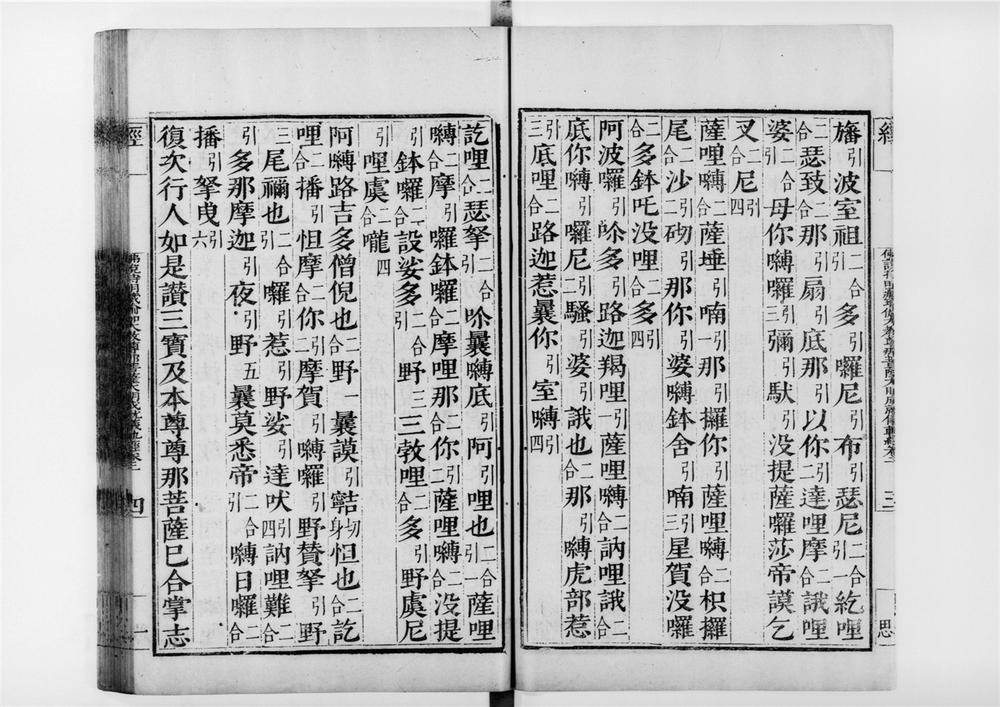 旛引波室祖引二合多引囉尼引布引瑟尼引二合一紇哩
二合瑟致二合那引扇引底那引以你二合達哩摩二合誐哩
婆引二合母你嚩囉三彌引馱引没提薩囉莎帝謨乞
叉二合尼引四
薩哩嚩二合薩埵引喃引一那引攞你引薩哩嚩二合枳攞
尾二合沙二引砌引那你引婆嚩鉢舍引喃三星賀没囉
二合多鉢吒没哩二合多引四
阿波囉引哛多引路迦羯哩一引薩哩嚩二合訥哩誐二合
底你嚩引囉尼二引騷引誐也二合那引嚩虎部惹
三引底哩二合路迦惹曩你引室嚩引四
訖哩二合瑟拏引二合哛曩嚩底引阿引哩也二合引一薩哩
嚩二合摩引囉鉢二合摩哩那二合你引薩哩嚩二合没提
引鉢囉二合設娑多引二合野引三敎哩二合多引野虞尼
引哩虞二合嚨四
阿嚩路吉多僧倪也二合野一曩謨引䩢切身怛也二合訖
哩二合播引怛摩二合你引二摩賀引嚩囉引野賛拏引野
三尾禰也二合引囉引惹引野娑引達吠引四訥哩難二合
引多那摩迦引夜野五曩莫悉帝引二合嚩日囉二合
播引拏曳引六
復次行人如是讃三寶及本尊尊那菩薩已合掌志
經
三
思
經
四